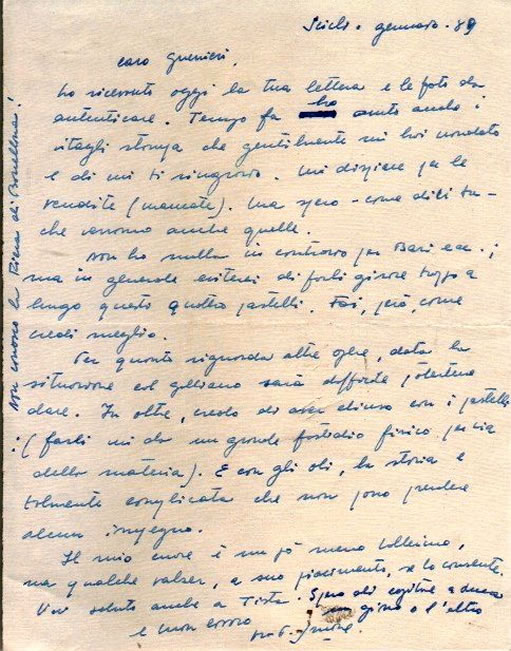 Scicli. gennaio. 89
caro Guerrieri,
ho ricevuto oggi la tua lettera e le foto da
autenticare. Tempo fa ho avuto anche i
ritagli stampa che gentilmente mi hai mandato
e di cui ti ringrazio. Mi dispiace per le
vendite (mancate). Ma spero - come dici tu -
che vengano anche quelle.
Non ho nulla in contrario per Bari ecc. ;
ma in generale eviterei di farli girare troppo a
lungo questi quattro pastelli. Fai, però, come
credi meglio.
Per quanto riguarda altre opere, data la
situazione col galliano sarà difficile potertene
dare. In oltre, credo di aver chiuso con i pastelli
(farli mi da un grande fastidio fisico per via
della materia). E con gli oli, la storia è
talmente complicata che non posso prendere
alcun impegno.
Il mio cuore è un pò meno
ma qualche, a suo piacimento, se lo consente.
Vivi saluti anche a Tista. Spero di capitare a
un giorno o l'altro
e buon lavoro
non conosco la Fiera di Barcellona!